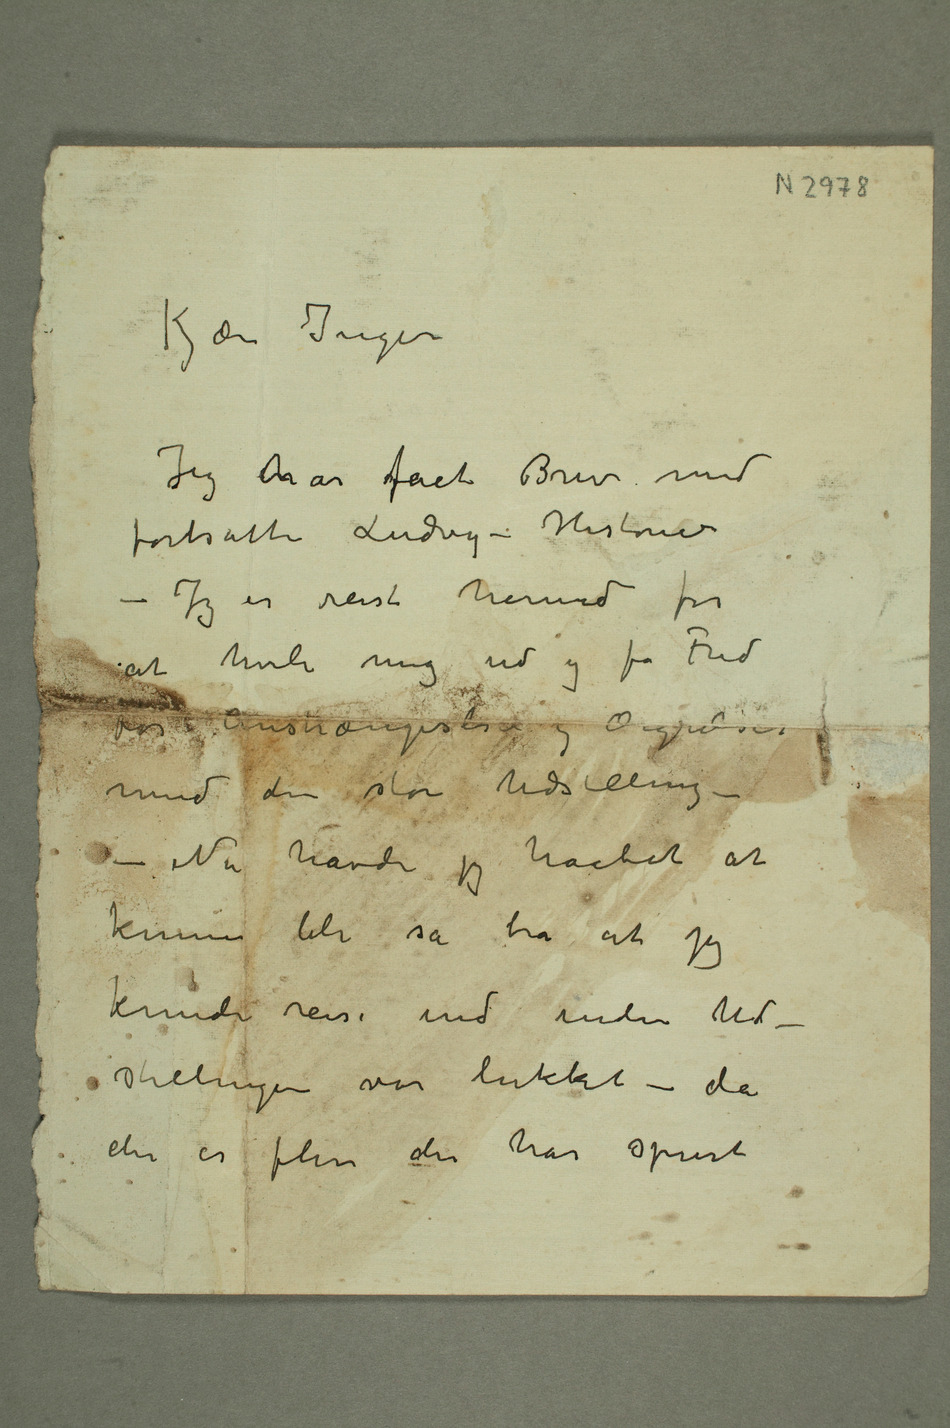 N 2978
Kjære Inger
Jeg har fået Brev med
fortsatte Ludvig – Historier
– Jg er reist herned for
at hvile mig ud og få Fred
for Anstrængelser og Ærgrelser
med den store Udstilling –
– Nu havde jg haabet at
kunne bli så bra at jeg
kunde reise ind inden Ud–
stillingen var lukket – da
der er flere der har spurt